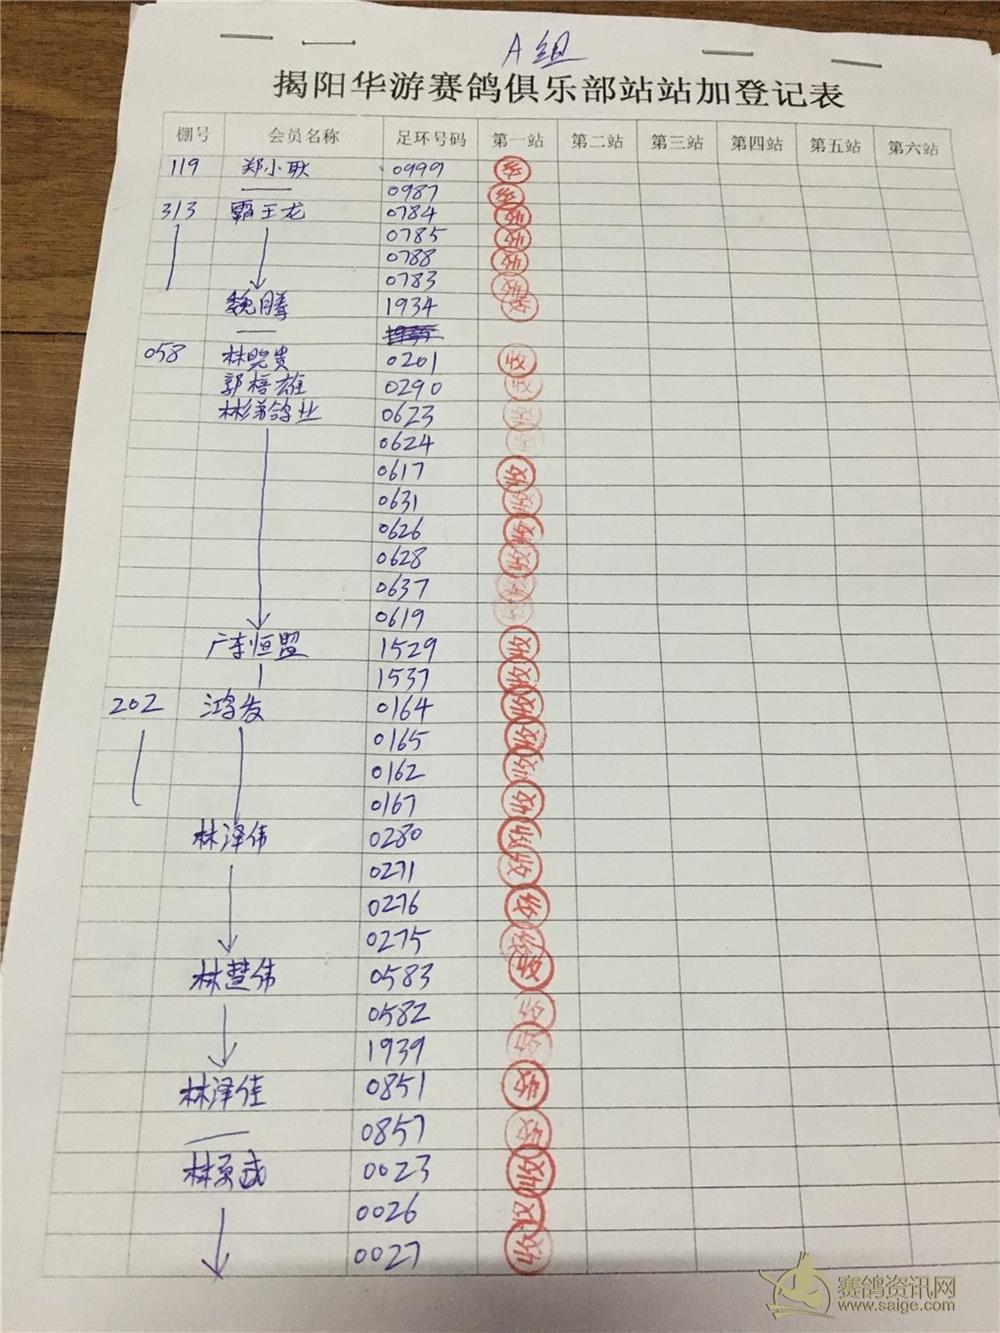 A组
揭阳华游赛鸽俱乐部站站加登记表
棚号 会员名称 足环号码 第一站 第二站 第三站 第四站 第五站 第六站
119 郑小耿 0999
0987
313 霸王龙 0784 收
0785 收
0788 收
0783 收
魏腾 1934 收
058 林晓贵 0201 收
郭梧雄 0290 收
彬弟鸽业 0623 收
0624 收
0617 收
0631 收
0626 收
0628 收
0637 收
0619
广东恒盟 1529 收
1537 收
202 鸿发 0164 收
0165 收
0162 收
0167 收
林泽伟 0280 收
0271 收
0276 收
0275 收
林楚伟 0583 收
0582 收
1939 收
林泽佳 0851 收
0857 收
林 0023 收
0026 收
0027 收
赛鸽资讯网
www.saige.com